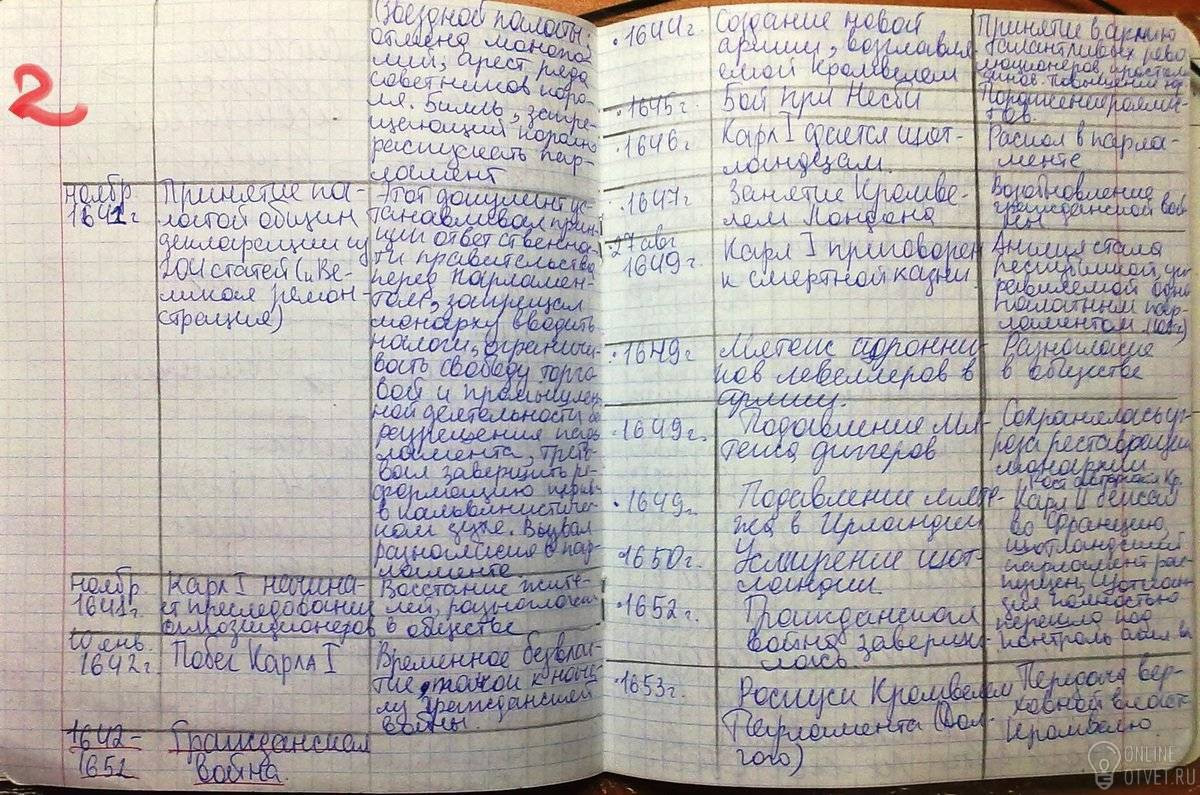 2
(Звездной палаты,
отмена монопо-
лий, арест ряда
советников коро-
ля. Билль, запре-
щающий королю
распускать пар-
ламент
ноябр
1641г
Принятие па-
латой общин
декларации из
204 статей („Ве-
ликая ремон-
страция)
Этот документ ус-
танавливал прин-
цип ответственно-
ти правительства
перед парламен-
том, запрещал
монарху вводить
налоги, ограничи-
вать свободу торго-
вой и промышлен-
ной деятельности бе
разрешения пар-
ламента, требо-
вал завершить ре-
формацию церкв
в кальвинистиче-
ком духе. Вызвал
разногласие в пар-
ламенте.
ноябр
1641г.
Карл I начина-
ет преследования
оппозиционеров
Восстание жите-
лей, разногласие
в обществе
10 янв.
1642г.
Побег Карла I
Временное безвлас-
тие, толчок к нача-
лу гражданской
войны.
1642-
1652
Гражданская
война.
1644г.
Создание новой
армии, возглавля
емой Кромвелем
Принятие в армию
талантливых рево
люционеров
1645г.
Бой при Несби
Поражение роялис-
тов.
1646г.
Карл I сдается шот-
ландцам.
Раскол в парла-
менте
1647г
Занятие Кромве-
лем Лондона
Возобновление
гражданской вой
ны
27 янв
1649г.
Карл I приговорен
к смертной казни.
Англия стала
республикой, уп
равляемой одно
палатным пар-
ламентом
1649г.
Мятеж сторонни-
ков левеллеров в
армии.
Разногласие
в обществе
1649г.
Подавление мя-
тежа диггеров
Сохранялась уг-
роза реставрации
монархии
1649г.
Подавление мяте-
жа в Ирландии
Карл II бежал
во Францию,
шотландский
парламент рас-
пущен, Шотлан-
дия полностью
перешла под
контроль
1650г.
Усмирение шот-
ландии.
1652г.
Гражданская
война заверши-
лась.
1653г.
Роспуск Кромвелем
Парламента (Дол-
гого)
Передача вер-
ховной власти
Кромвелю.
ONLINE
OTVET.RU